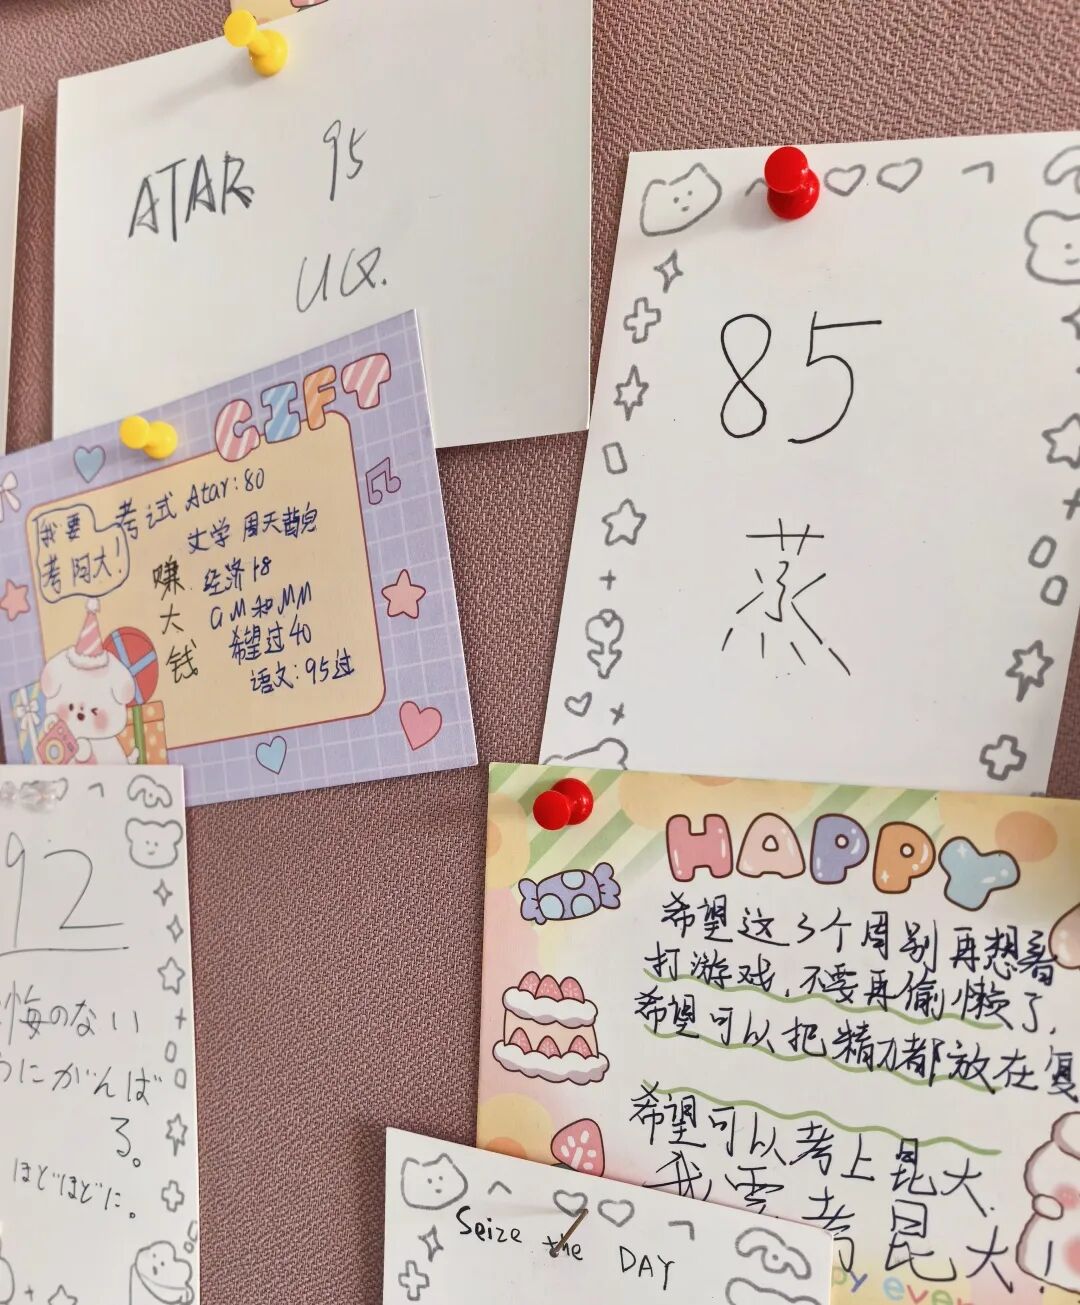 ATAR 95
UQ.
85
蒸
GIFT
我要
考阿大!
考试 Atar:80
文学 周天酋皃
赚大钱
经济 18
GM和MM
希望过40
语文:95过
92
悔のない
うにがんば
る。
ほどほどに。
HAPPY
希望这3个周别再想着
打游戏,不要再偷懒了.
希望可以把精力都放在复
希望可以考上昆大.
我要考昆大!
Seize the DAY